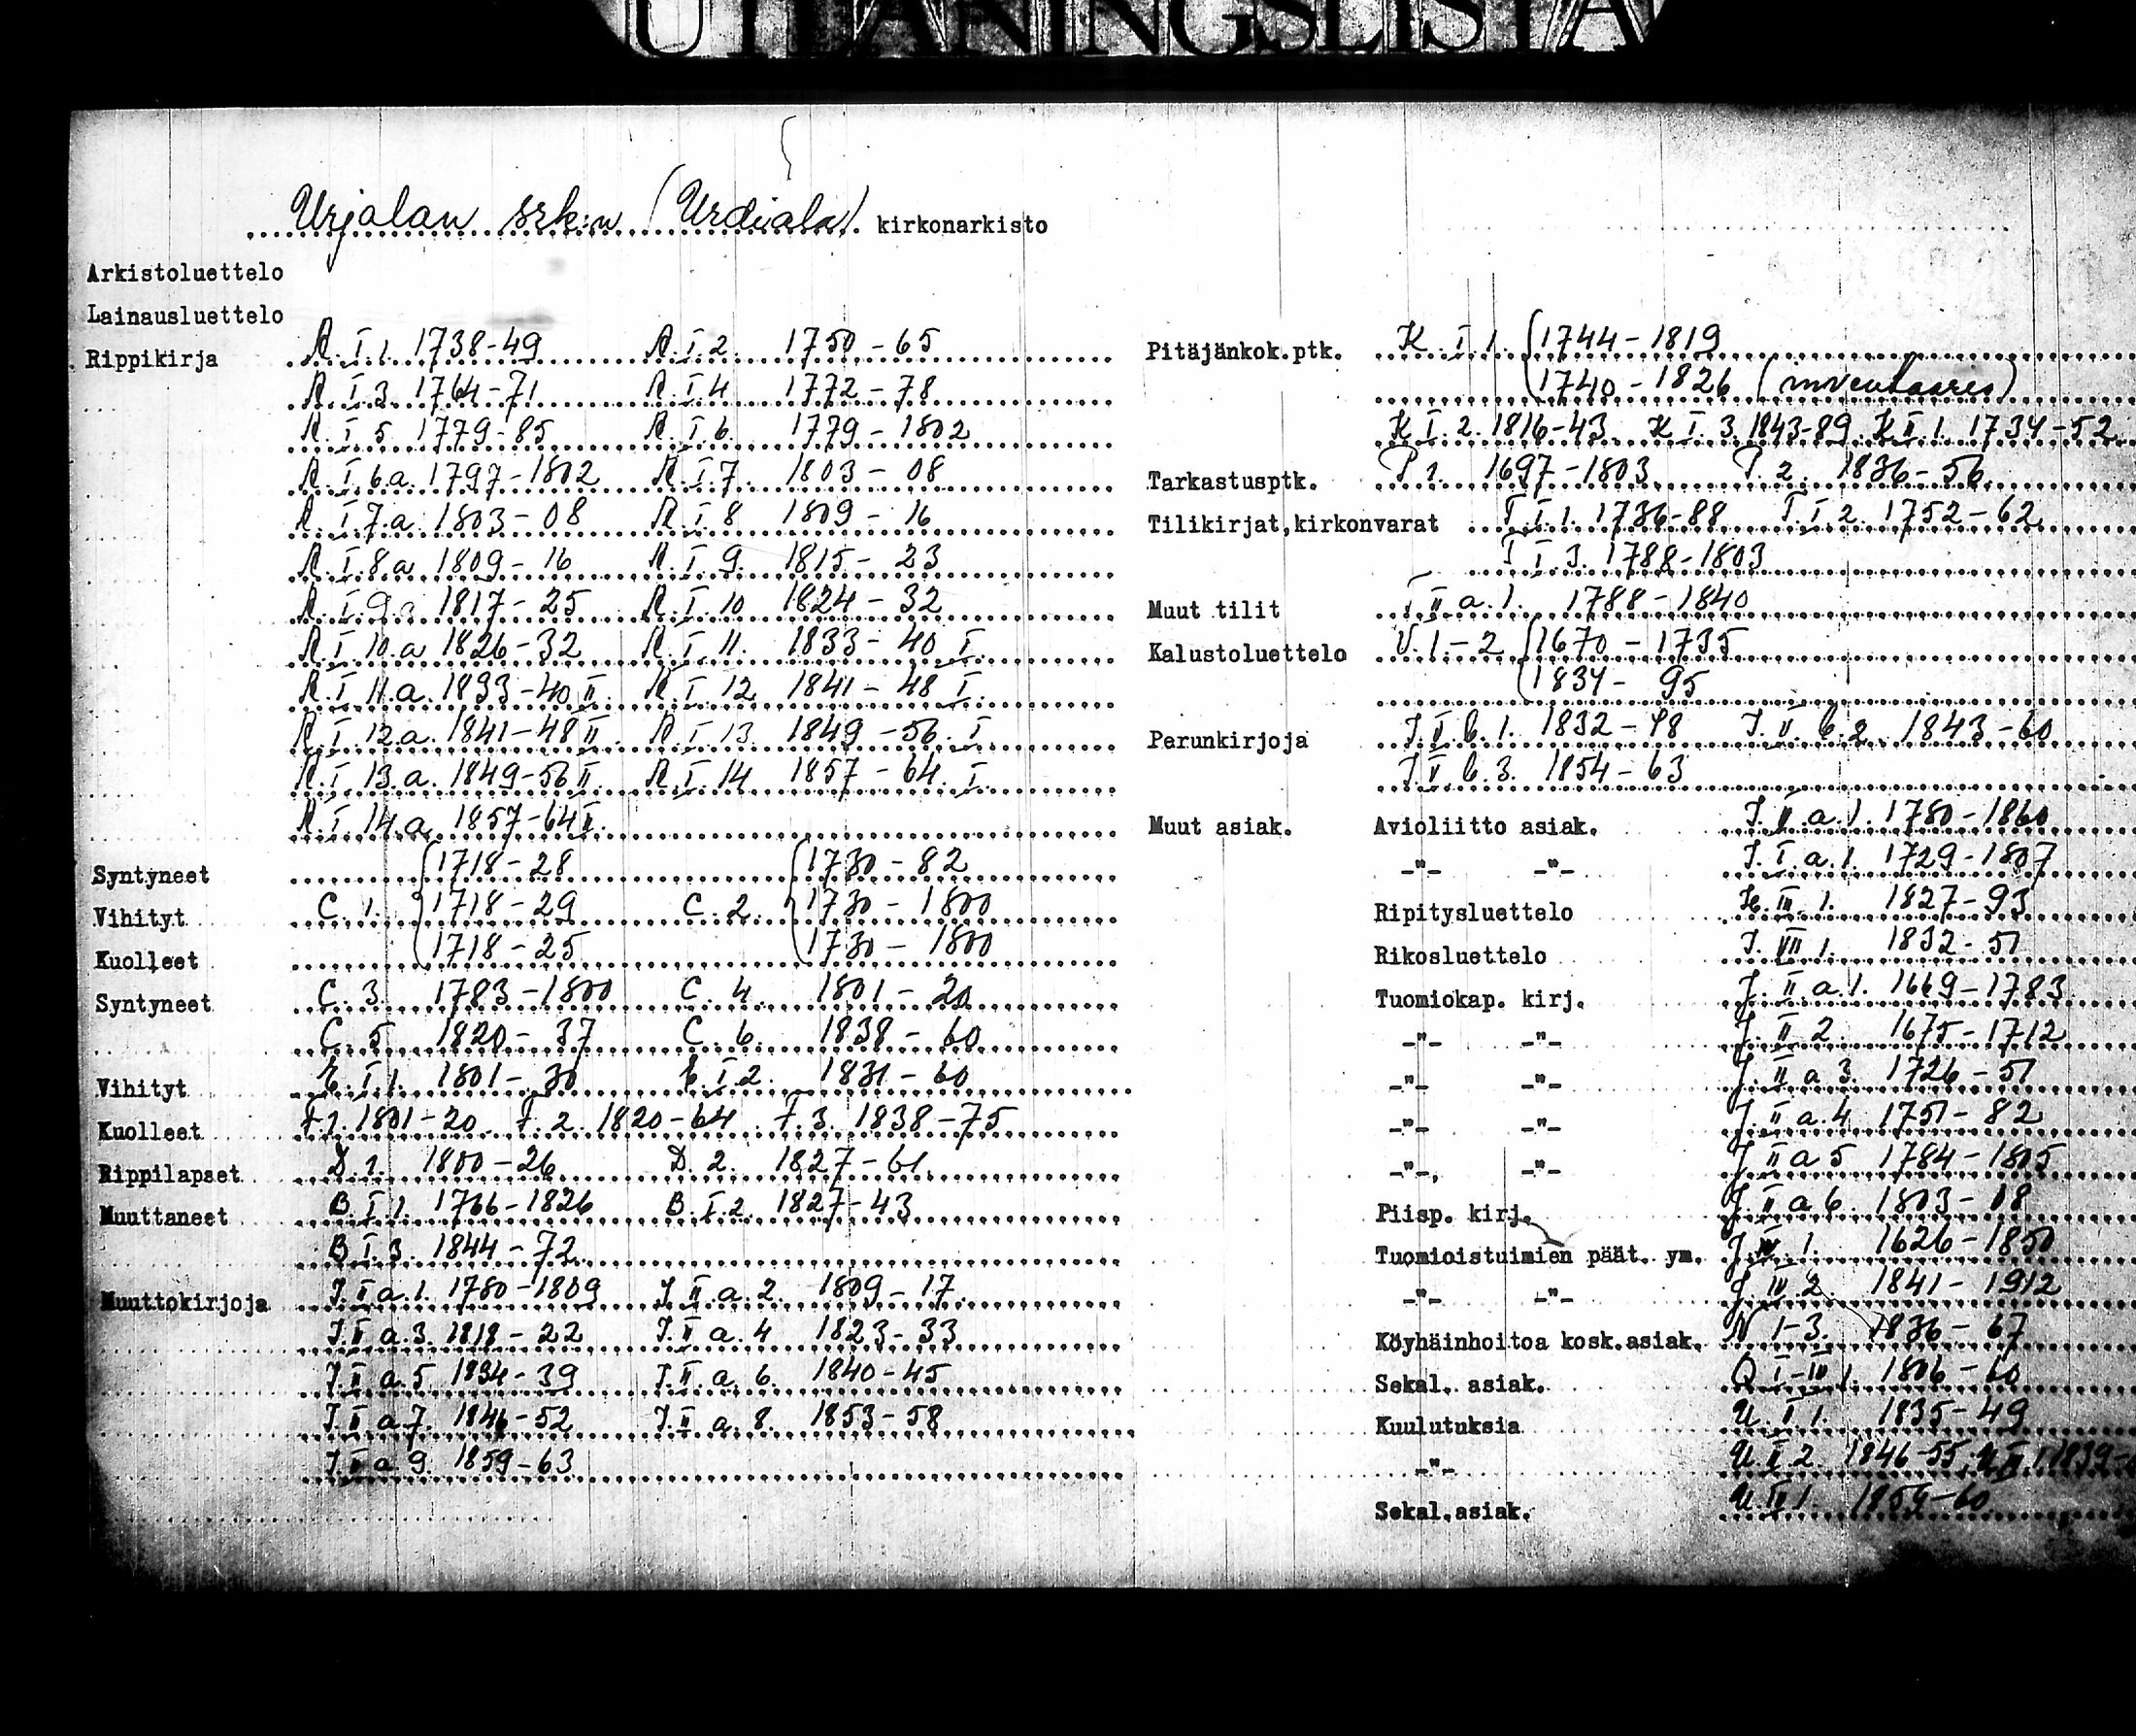 UTLÅNINGSLISTA
Urjalan srk:n (Urdiala) kirkonarkisto
Arkistoluettelo
Lainausluettelo
Rippikirja A.I.1. 1738-49 A.I.2. 1750-65
A.I.3. 1764-71 A.I.4 1772-78
A.I.5. 1779-85 A.I.6. 1779-1802
A.I.6.a. 1797-1802 A.I.7. 1803-08
A.I.7.a. 1803-08 A.I.8 1809-16
A.I.8.a 1809-16 A.I.9. 1815-23
A.I.9.a 1817-25 A.I.10 1824-32
A.I.10.a 1826-32 A.I.11. 1833-40 I.
A.I.11.a. 1833-40 II. A.I.12. 1841-48 I.
A.I.12.a. 1841-48 II. A.I.13. 1849-56. I
A.I.13.a. 1849-56 II. A.I.14 1857-64. I.
A.I.14.a. 1857-64 II.
Syntyneet 1718-28 1730-82
Vihityt C.1. 1718-29 C.2. 1730-1800
Kuolleet 1718-25 1730-1800
Syntyneet C.3. 1783-1800 C.4. 1801-20
C.5 1820-37 C.6. 1838-60
Vihityt E.I.1. 1801-30 E.I.2. 1831-60
Kuolleet F.1. 1801-20 F.2. 1820-64 F.3. 1838-75
Rippilapset D.1. 1800-26 D.2. 1827-61.
Muuttaneet B.I.1. 1766-1826 B.I.2. 1827-43
B.I.3. 1844-72
Muuttokirjoja J.II.a.1. 1780-1809 J.II.a.2. 1809-17
J.II.a.3. 1818-22 J.II.a.4 1823-33
J.II.a.5 1834-39 J.II.a.6. 1840-45
J.II.a.7. 1846-52 J.II.a.8. 1853-58
J.II.a.9. 1859-63
Pitäjänkok.ptk. K.I.1. 1744-1819
1740-1826 (inventaario)
K I.2. 1816-43 K I.3. 1843-89 K II.1. 1734-52
Tarkastusptk. P 1. 1697-1803 P.2. 1836-56
Tilikirjat,kirkonvarat T.I.1. 1736-88 T.I.2. 1752-62
T I.3. 1788-1803
Muut tilit T II a.1. 1788-1840
Kalustoluettelo V.1-2 1670-1735
1834-95
Perunkirjoja J.V.b.1. 1832-48 J.V.b.2. 1843-60
J.V.b.3. 1854-63
Muut asiak. Avioliitto asiak. J.V.a.1. 1780-1860
-"- -"- J.I.a.1. 1729-1807
Ripitysluettelo H.III 1. 1827-93
Rikosluettelo J.VII 1. 1832-51
Tuomiokap. kirj. J.II a.1. 1669-1783
-"- -"- J.II 2. 1675-1712
-"- -"- J.II a 3. 1726-51
-"- -"- J.II a.4 1751-82
-"-. -"- J II a 5 1784-1805
Piisp. kirj. J.II a 6. 1803-18
Tuomioistuimien päät. ym. J.IV.1. 1626-1850
-"- -"- J IV 2 1841-1912
Köyhäinhoitoa kosk.asiak. N 1-3. 1836-67
Sekal. asiak. Q I-III 1. 1806-60
Kuulutuksia U.I 1. 1835-49
-"- U.I 2. 1846-55, 1839-
Sekal.asiak. U.IV 1. 1859-60